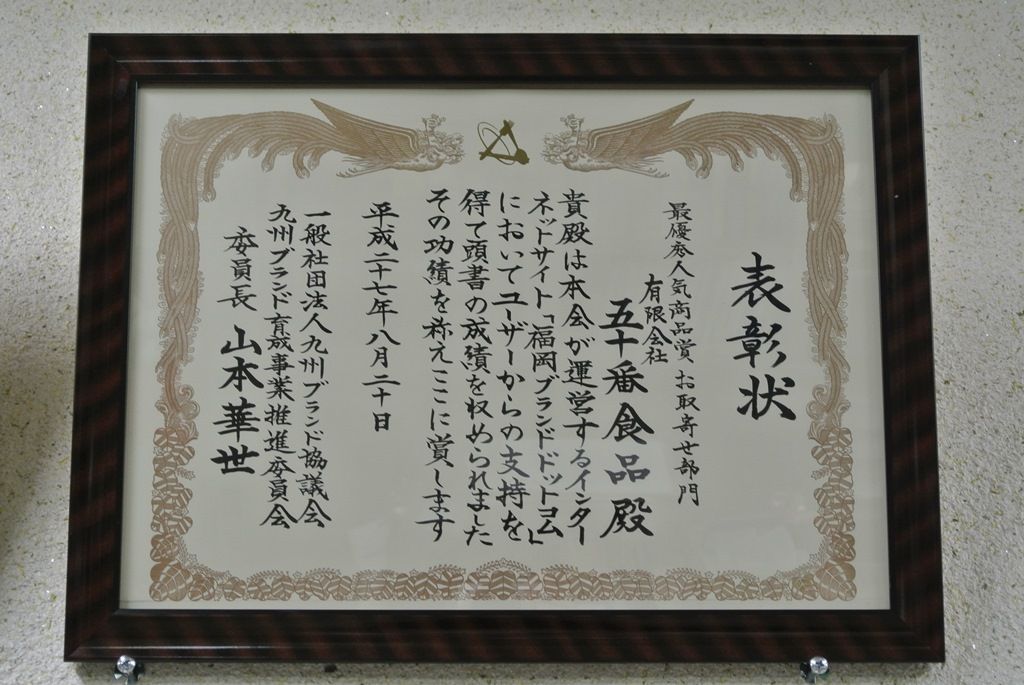 表彰状
最優秀人気商品賞 お取寄せ部門
有限会社
五十番食品殿
貴殿は本会が運営するインター
ネットサイト「福岡ブランドドットコム」
においてユーザーからの支持を
得て頭書の成績を収められました
その功績を称えここに賞します
平成二十七年八月二十日
一般社団法人九州ブランド協議会
九州ブランド育成事業推進委員会
委員長 山本華世